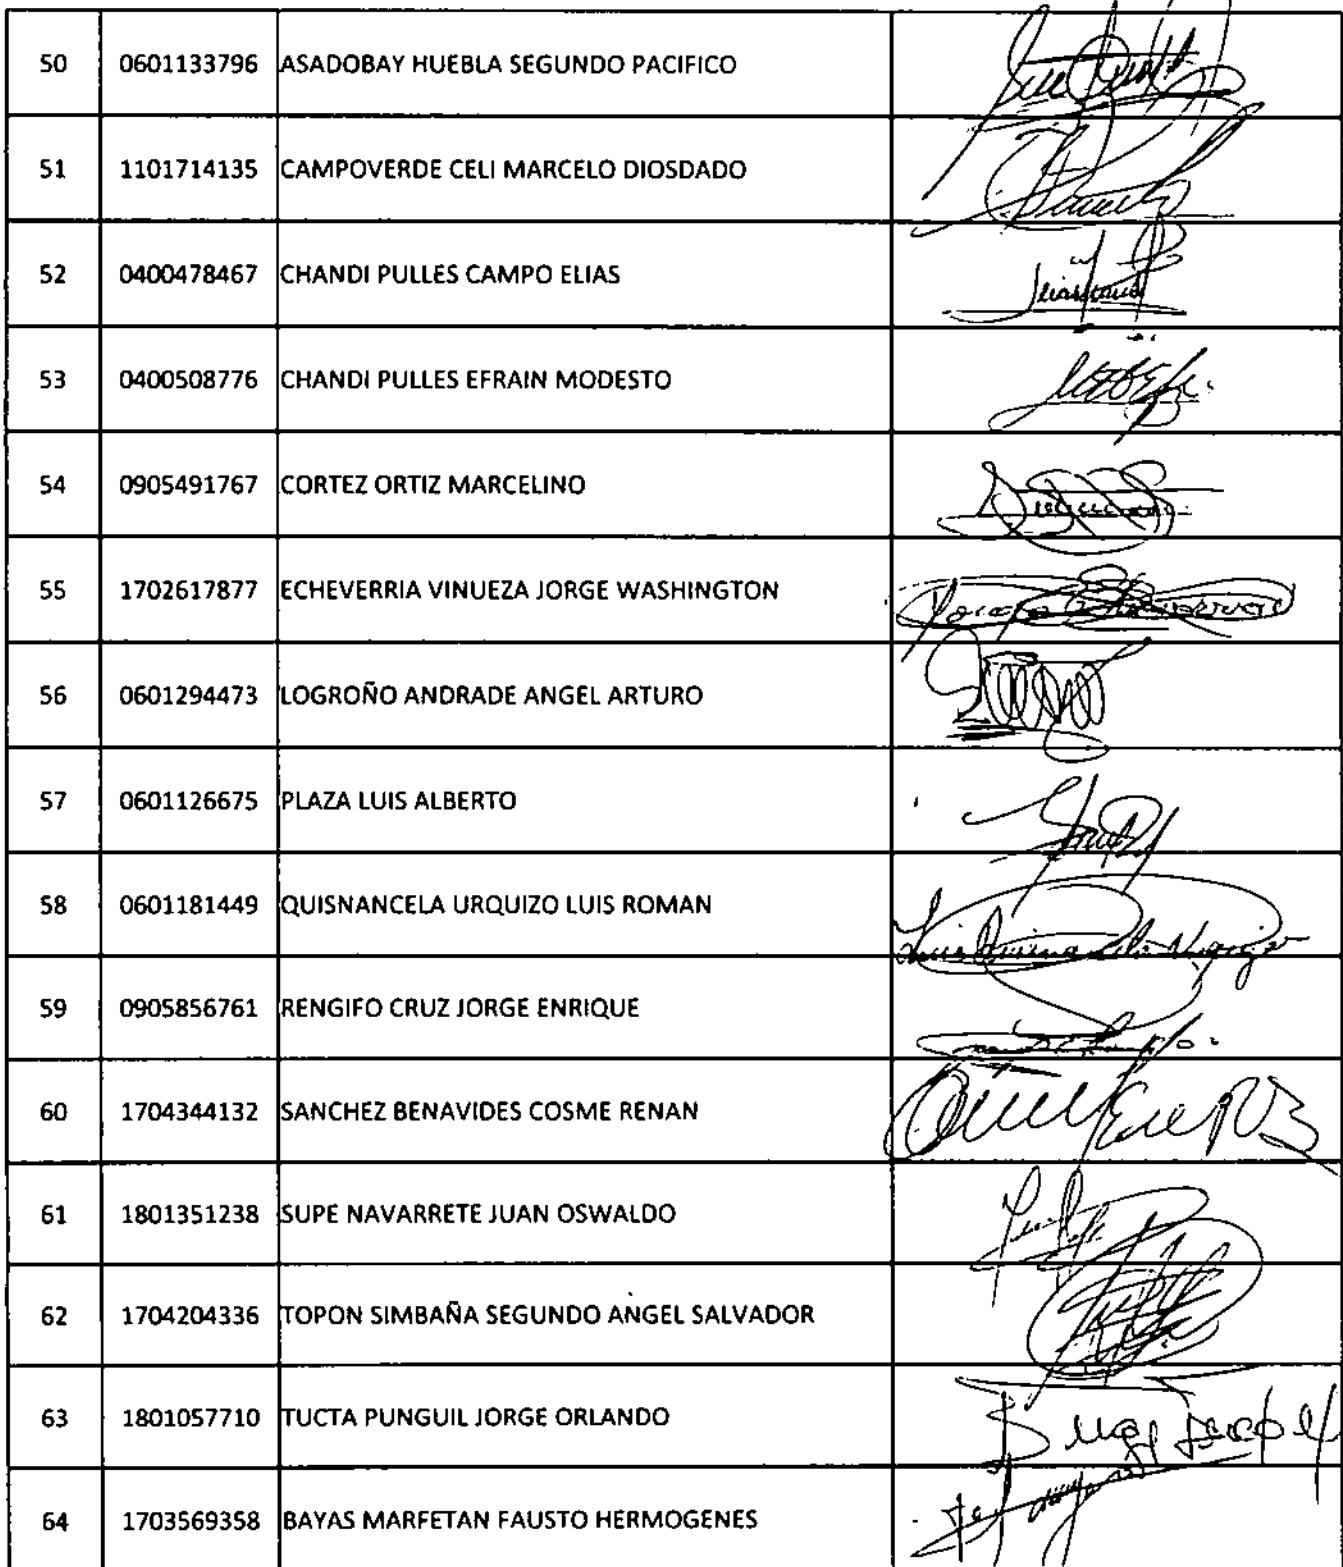 50 0601133796 ASADOBAY HUEBLA SEGUNDO PACIFICO
51 1101714135 CAMPOVERDE CELI MARCELO DIOSDADO
52 0400478467 CHANDI PULLES CAMPO ELIAS
53 0400508776 CHANDI PULLES EFRAIN MODESTO
54 0905491767 CORTEZ ORTIZ MARCELINO
55 1702617877 ECHEVERRIA VINUEZA JORGE WASHINGTON
56 0601294473 LOGROÑO ANDRADE ANGEL ARTURO
57 0601126675 PLAZA LUIS ALBERTO
58 0601181449 QUISNANCELA URQUIZO LUIS ROMAN
59 0905856761 RENGIFO CRUZ JORGE ENRIQUE
60 1704344132 SANCHEZ BENAVIDES COSME RENAN
61 1801351238 SUPE NAVARRETE JUAN OSWALDO
62 1704204336 TOPON SIMBAÑA SEGUNDO ANGEL SALVADOR
63 1801057710 TUCTA PUNGUIL JORGE ORLANDO
64 1703569358 BAYAS MARFETAN FAUSTO HERMOGENES